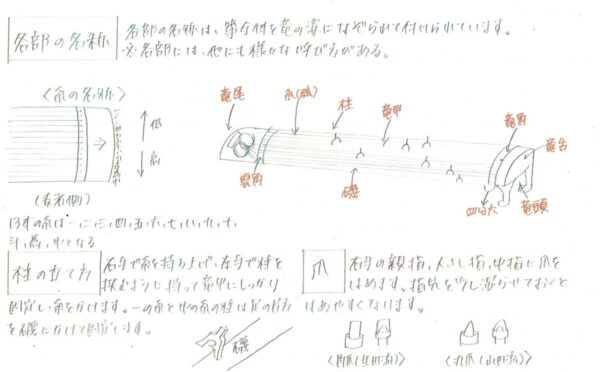 各部の名称
各部の名称は、箏全体を竜の姿になぞらえて付けられています。
※各部には、他にも様々な呼び方がある。
〈糸の名称〉
低
高
(奏者側)
竜尾
糸(絃)
柱
竜甲
竜角
竜舌
雲角
磯
四分六
竜頭
13本の糸は一、二、三、四、五、六、七、八、九、十、
斗、為、巾となる
柱の立て方
右手で糸を持ち上げ、左手で柱を
挟むように持って竜甲にしっかり
固定し糸をかけます。一の糸と巾の糸の柱は足の片方
を磯にかけて固定します。
磯
爪
右手の親指、人さし指、中指に爪を
はめます。指先を少し湿らせておくと
はめやすくなります。
〈角爪(生田流)〉
〈丸爪(山田流)〉